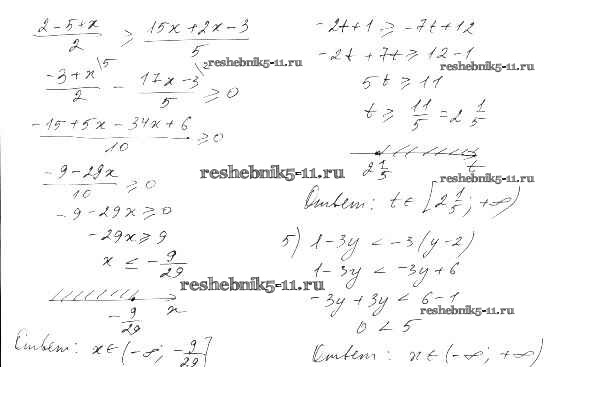 (2-5+x)/2 ≥ (15x+2x-3)/5
(-3+x)/2 \5 - (17x-3)/5 \2 ≥ 0
(-15+5x-34x+6)/10 ≥ 0
(-9-29x)/10 ≥ 0
-9-29x ≥ 0
-29x ≥ 9
x ≤ -9/29
-9/29 x
Ответ: x∈(-∞; -9/29]
-2t+1 ≥ -7t+12
-2t+7t ≥ 12-1
5t ≥ 11
t ≥ 11/5 = 2 1/5
2 1/5 t
Ответ: t∈[2 1/5; +∞)
5) 1-3y < -3(y-2)
1-3y < -3y+6
-3y+3y < 6-1
0 < 5
Ответ: x∈(-∞; +∞)
reshebnik5-11.ru
reshebnik5-11.ru
reshebnik5-11.ru
reshebnik5-11.ru
reshebnik5-11.ru
reshebnik5-11.ru